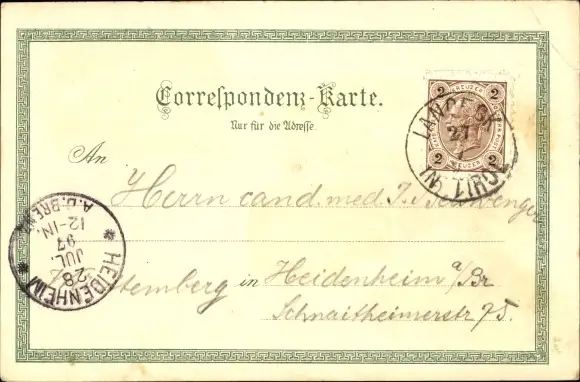 Correspondenz-Karte.
Nur für die Adresse.
2 KREUZER 2
2 KREUZER 2
LANDECK
27
IN TIROL 1
An
Herrn cand. med.
in Heidenheim a/Br
Schnaitheimerstr 75.
HEIDENHEIM
A. D. BRENZ
12-1N.
97
JUL.
28